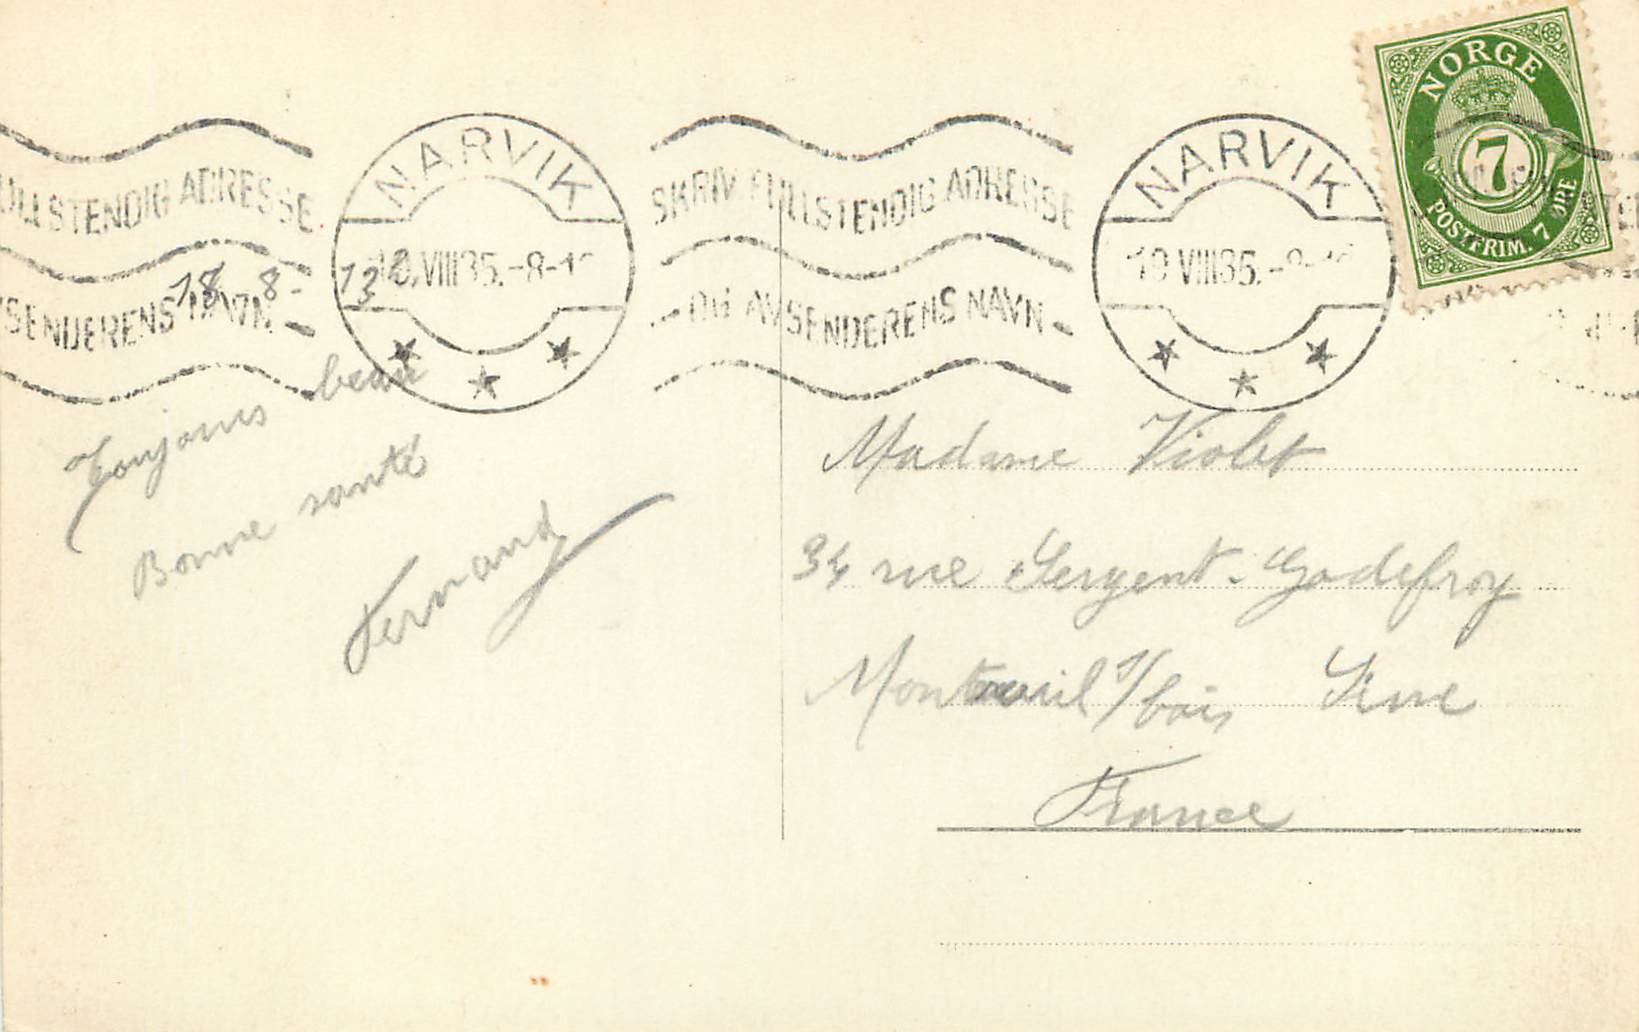 NORGE
7
POSTFRIM. 7 ØRE
ULLSTENDIG ADRESSE
VSENDERENS NAVN
NARVIK
VIII35.-8-1
SKRIV FULLSTENDIG ADRESSE
OG AVSENDERENS NAVN
NARVIK
19 VIII35.
18 8-
Toujours beau
Bonne santé
Fernand
Madame Violet
34 rue Sergent-Godefroy
Montreuil s/bois Seine
France